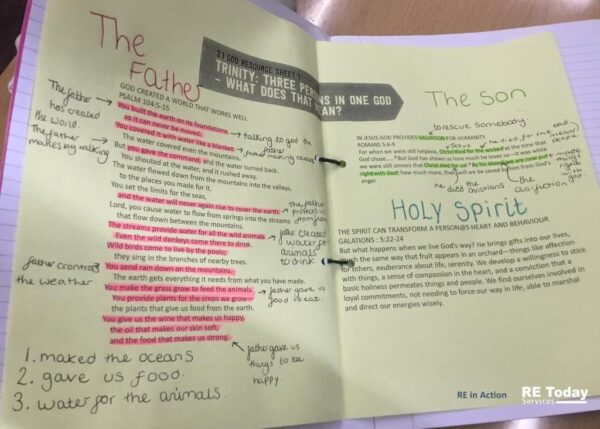 The
Father
2.1 GOD RESOURCE SHEET 1
TRINITY: THREE PERSONS IN ONE GOD
– WHAT DOES THAT MEAN?
GOD CREATED A WORLD THAT WORKS WELL
PSALM 104:5-15
You built the earth on its foundations,
so it can never be moved.
You covered it with water like a blanket
The water covered even the mountains.
But you gave the command, and the water turned back.
You shouted at the water, and it rushed away.
The water flowed down from the mountains into the valleys,
to the places you made for it.
You set the limits for the seas,
and the water will never again rise to cover the earth.
Lord, you cause water to flow from springs into the streams
that flow down between the mountains.
The streams provide water for all the wild animals.
Even the wild donkeys come there to drink.
Wild birds come to live by the pools;
they sing in the branches of nearby trees.
You send rain down on the mountains.
The earth gets everything it needs from what you have made.
You make the grass grow to feed the animals.
You provide plants for the crops we grow—
the plants that give us food from the earth.
You give us the wine that makes us happy,
the oil that makes our skin soft,
and the food that makes us strong.
The father
has created
the world.
The father
makes by talking
talking to god the
father
father making ocean
the father
protects us
from
father created
water for
animals
to drink
father
the weather.
father gave us
food to eat.
father gave us
things to be
happy.
1. maked the oceans
2. gave us food.
3. water for the animals.
The Son
to rescue somebody.
IN JESUS GOD PROVIDES SALVATION FOR HUMANITY
ROMANS 5:6-9
Jesus
he died for the bad
people
For when we were still helpless, Christ died for the wicked at the time that
God chose.... But God has shown us how much he loves us—it was while
we were still sinners that Christ died for us! By his blood we are now put
right with God; how much more, then, will we be saved by him from God's
anger
made
right
with
god.
he died
christians
the
HOLY Spirit
THE SPIRIT CAN TRANSFORM A PERSON@S HEART AND BEHAVIOUR
GALATIONS : 5:22-24
But what happens when we live God's way? He brings gifts into our lives,
much the same way that fruit appears in an orchard—things like affection
for others, exuberance about life, serenity. We develop a willingness to stick
with things, a sense of compassion in the heart, and a conviction that a
basic holiness permeates things and people. We find ourselves involved in
loyal commitments, not needing to force our way in life, able to marshal
and direct our energies wisely.
RE in Action
RE Today
Services